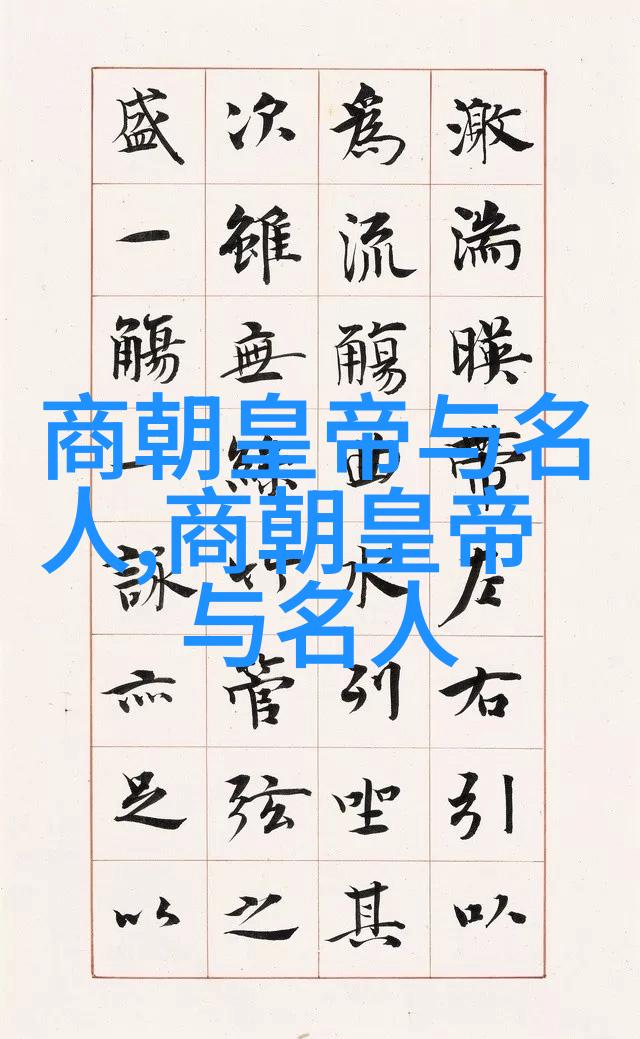 激湍暎帶左右引以
爲流觴曲水列坐其
次雖無絲竹管弦之
盛一觴一詠亦足以
商朝皇帝与名
人,商朝皇帝
与名人